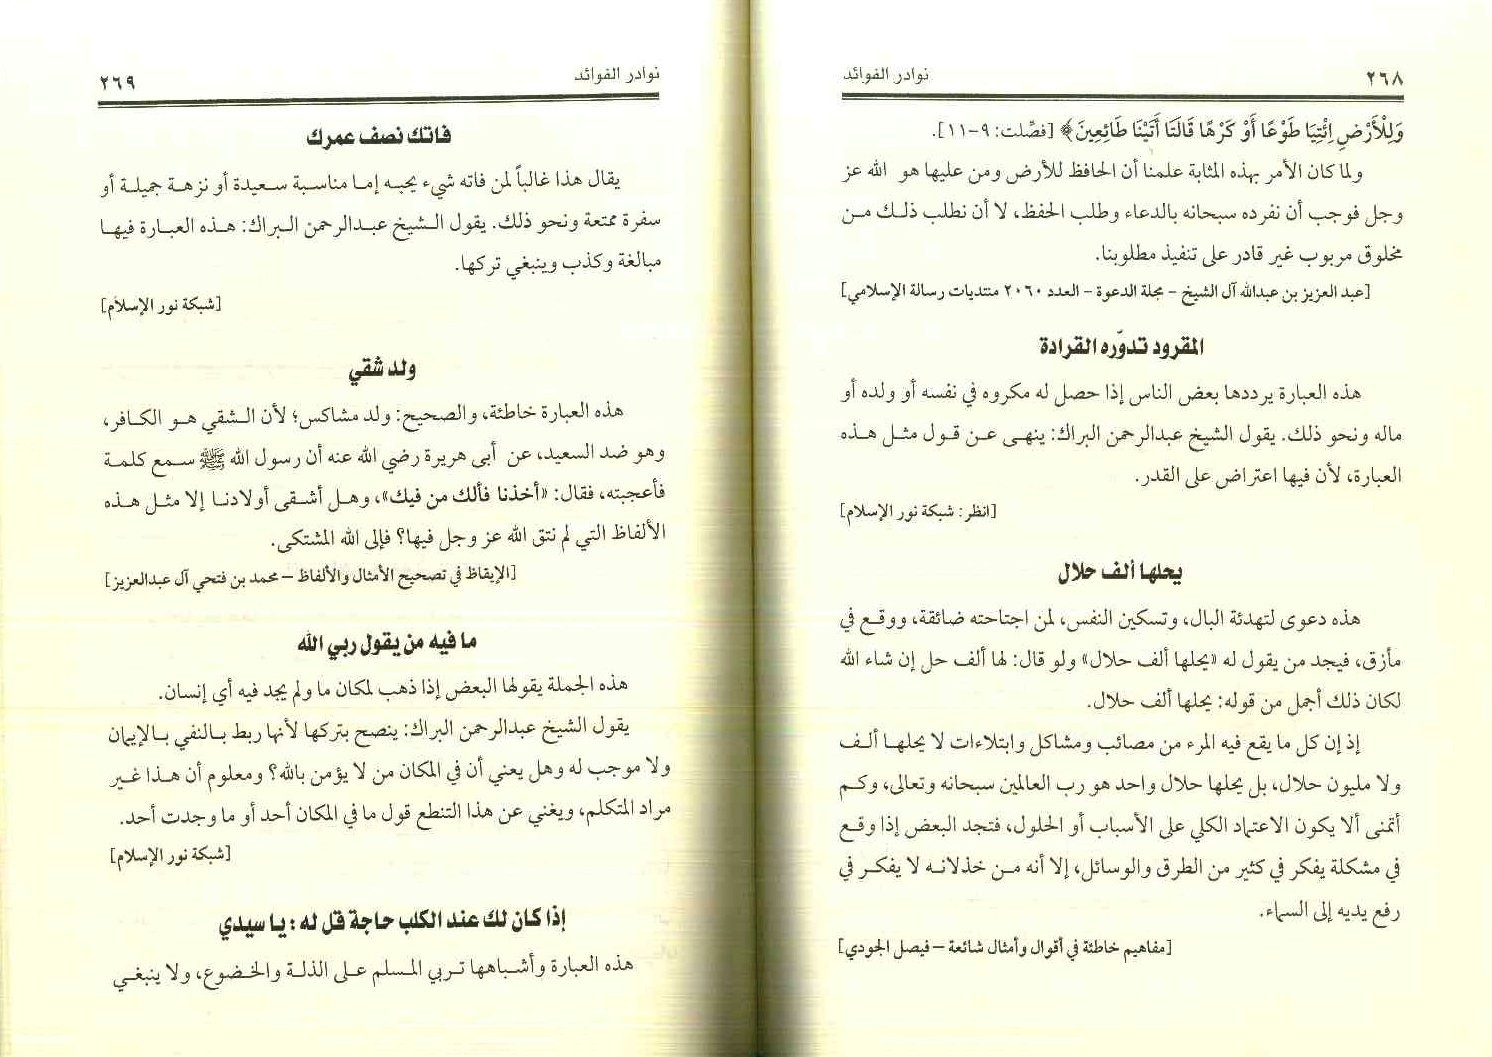 ٢٦٨ نوادر الفوائد
وَلِلْأَرْضِ اِئْتِيَا طَوْعًا أَوْ كَرْهًا قَالَتَا أَتَيْنَا طَائِعِينَ﴾ [فصِّلت: ٩-١١].
ولما كان الأمر بهذه المثابة علمنا أن الحافظ للأرض ومن عليها هو الله عز
وجل فوجب أن نفرده سبحانه بالدعاء وطلب الحفظ، لا أن نطلب ذلك من
مخلوق مربوب غير قادر على تنفيذ مطلوبنا.
[عبد العزيز بن عبدالله آل الشيخ – مجلة الدعوة – العدد ٢٠٦٠ منتديات رسالة الإسلامي]
المقرود تدوّره القرادة
هذه العبارة يرددها بعض الناس إذا حصل له مكروه في نفسه أو ولده أو
ماله ونحو ذلك. يقول الشيخ عبدالرحمن البراك: ينهى عن قول مثل هذه
العبارة، لأن فيها اعتراض على القدر.
[انظر: شبكة نور الإسلام]
يحلها ألف حلال
هذه دعوى لتهدئة البال، وتسكين النفس، لمن اجتاحته ضائقة، ووقع في
مأزق، فيجد من يقول له «يحلها ألف حلال» ولو قال: لها ألف حل إن شاء الله
لكان ذلك أجمل من قوله: يحلها ألف حلال.
إذ إن كل ما يقع فيه المرء من مصائب ومشاكل وابتلاءات لا يحلها ألف
ولا مليون حلال، بل يحلها حلال واحد هو رب العالمين سبحانه وتعالى، وكم
أتمنى ألا يكون الاعتماد الكلي على الأسباب أو الحلول، فتجد البعض إذا وقع
في مشكلة يفكر في كثير من الطرق والوسائل، إلا أنه من خذلانه لا يفكر في
رفع يديه إلى السماء.
[مفاهيم خاطئة في أقوال وأمثال شائعة – فيصل الجودي]
نوادر الفوائد ٢٦٩
فاتك نصف عمرك
يقال هذا غالباً لمن فاته شيء يحبه إما مناسبة سعيدة أو نزهة جميلة أو
سفرة ممتعة ونحو ذلك. يقول الشيخ عبدالرحمن البراك: هذه العبارة فيها
مبالغة وكذب وينبغي تركها.
[شبكة نور الإسلام]
ولد شقي
هذه العبارة خاطئة، والصحيح: ولد مشاكس؛ لأن الشقي هو الكافر،
وهو ضد السعيد، عن أبي هريرة رضي الله عنه أن رسول الله ﷺ سمع كلمة
فأعجبته، فقال: «أخذنا فألك من فيك»، وهل أشقى أولادنا إلا مثل هذه
الألفاظ التي لم نتق الله عز وجل فيها؟ فإلى الله المشتكى.
[الإيقاظ في تصحيح الأمثال والألفاظ – محمد بن فتحي آل عبدالعزيز]
ما فيه من يقول ربي الله
هذه الجملة يقولها البعض إذا ذهب لمكان ما ولم يجد فيه أي إنسان.
يقول الشيخ عبدالرحمن البراك: ينصح بتركها لأنها ربط بالنفي بالإيمان
ولا موجب له وهل يعني أن في المكان من لا يؤمن بالله؟ ومعلوم أن هذا غير
مراد المتكلم، ويغني عن هذا التنطع قول ما في المكان أحد أو ما وجدت أحد.
[شبكة نور الإسلام]
إذا كان لك عند الكلب حاجة قل له: يا سيدي
هذه العبارة وأشباهها تربي المسلم على الذلة والخضوع، ولا ينبغي